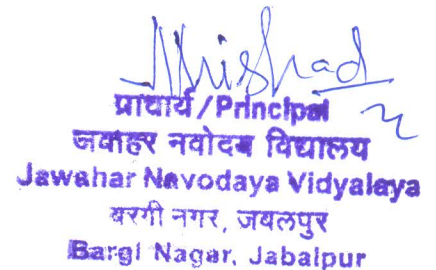 प्राचार्य/Principal
जवाहर नवोदय विद्यालय
Jawahar Navodaya Vidyalaya
बरगी नगर, जबलपुर
Bargi Nagar, Jabalpur